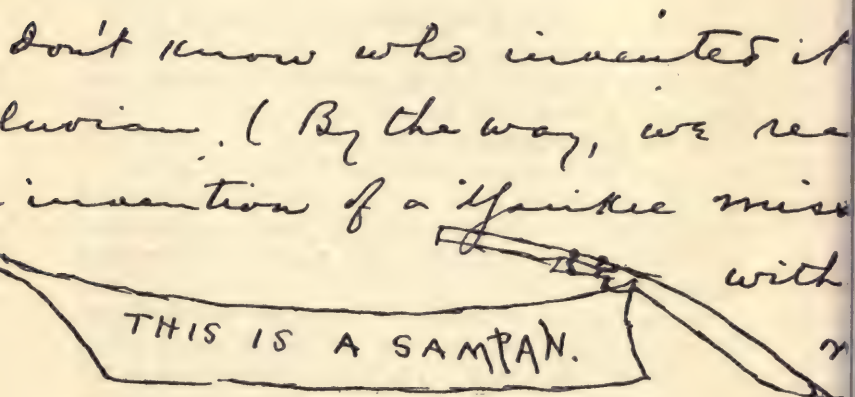 don't know who invented it
luvian. (By the way, we
invention of a Yankee
with
THIS IS A SAMPAN.